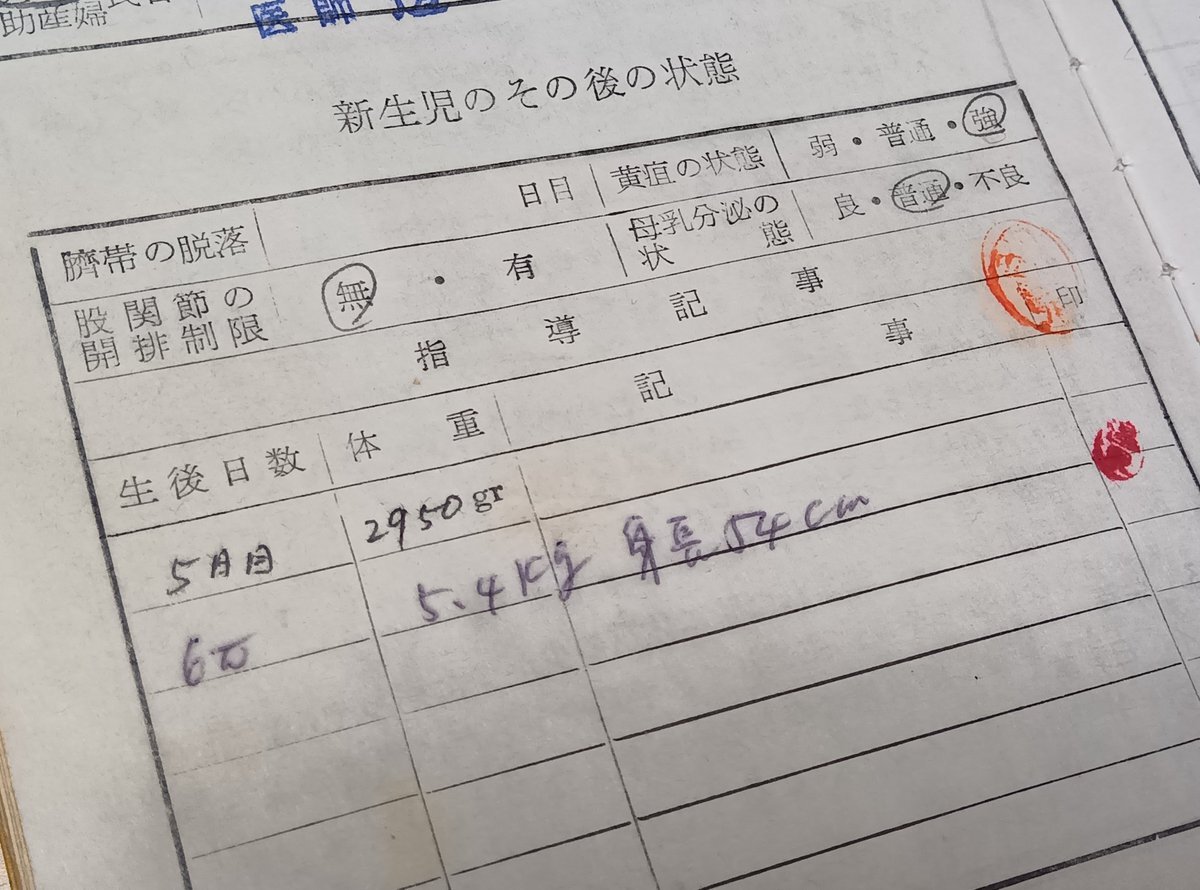 助産婦
医師
新生児のその後の状態
臍帯の脱落 日目 黄疸の状態 弱・普通・強
股関節の開排制限 無・有 母乳分泌の状態 良・普通・不良
指導記事 印
生後日数 体重 記事
5日目 2950gr
5.4Kg 身長54cm